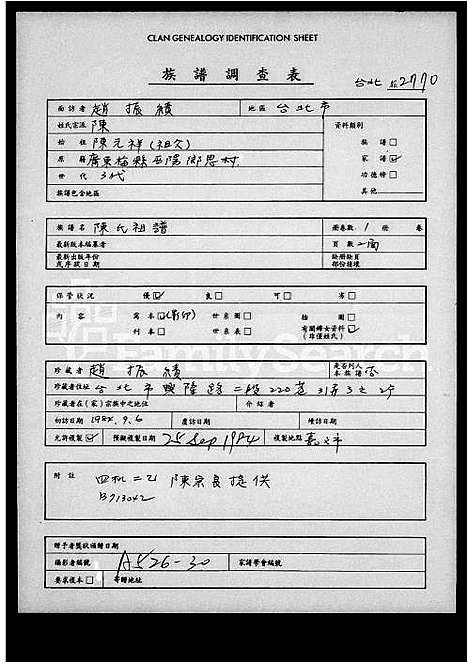 CLAN GENEALOGY IDENTIFICATION SHEET
族譜調查表
台北 2770
面訪者 趙振績 地區 台北市
姓氏宗派 陳 資料類別
始祖 陳元祥(祖父) 族譜
原籍 廣東梅縣 鄉思村 家譜
世代 3代 功德榜
族譜包含地區 其他
族譜名 陳氏祖譜 冊卷數 1 冊 卷
最新版本編纂者 頁數
最新出版年份 缺冊缺頁
或序跋日期 部份損壞
保管狀況 優 良 可 劣
內容 寫本(影印) 世系圖 插圖
刊本 世系表 有關婦女資料
(非僅姓氏)
珍藏者 趙振績 是否列入本族譜 否
珍藏者住址 台北市興隆路二段220巷31弄3之2F
珍藏者在(家)宗族中之地位 介紹者
初訪日期 1984.9.6 覆訪日期 續訪日期
允許複製 預擬複製日期 25 Sep 1984 複製地點
附註 陳宗良提供
B713042
贈予者獎狀頒贈日期
攝影者編號 A526-30 家譜學會編號
要求複本 寄贈地址
FamilySearch